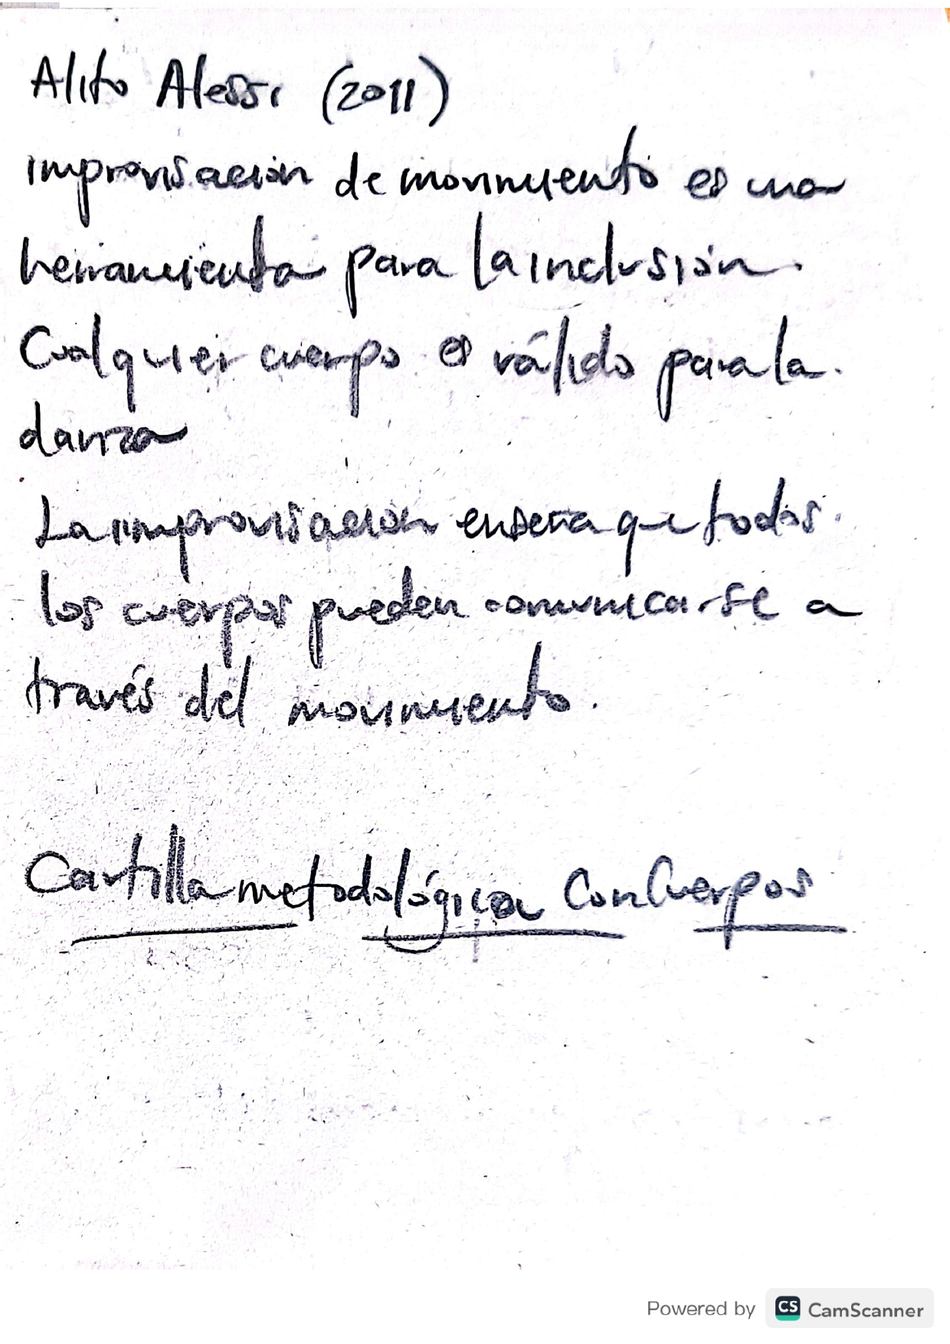 Alito Alessi (2011)
improvisación de movimiento es una
herramienta para la inclusión.
Cualquier cuerpo es válido para la.
danza
La improvisación enseña que todos.
los cuerpos pueden comunicarse a
través del movimiento.
Cartilla metodológica ConCuerpos
Powered by CS CamScanner